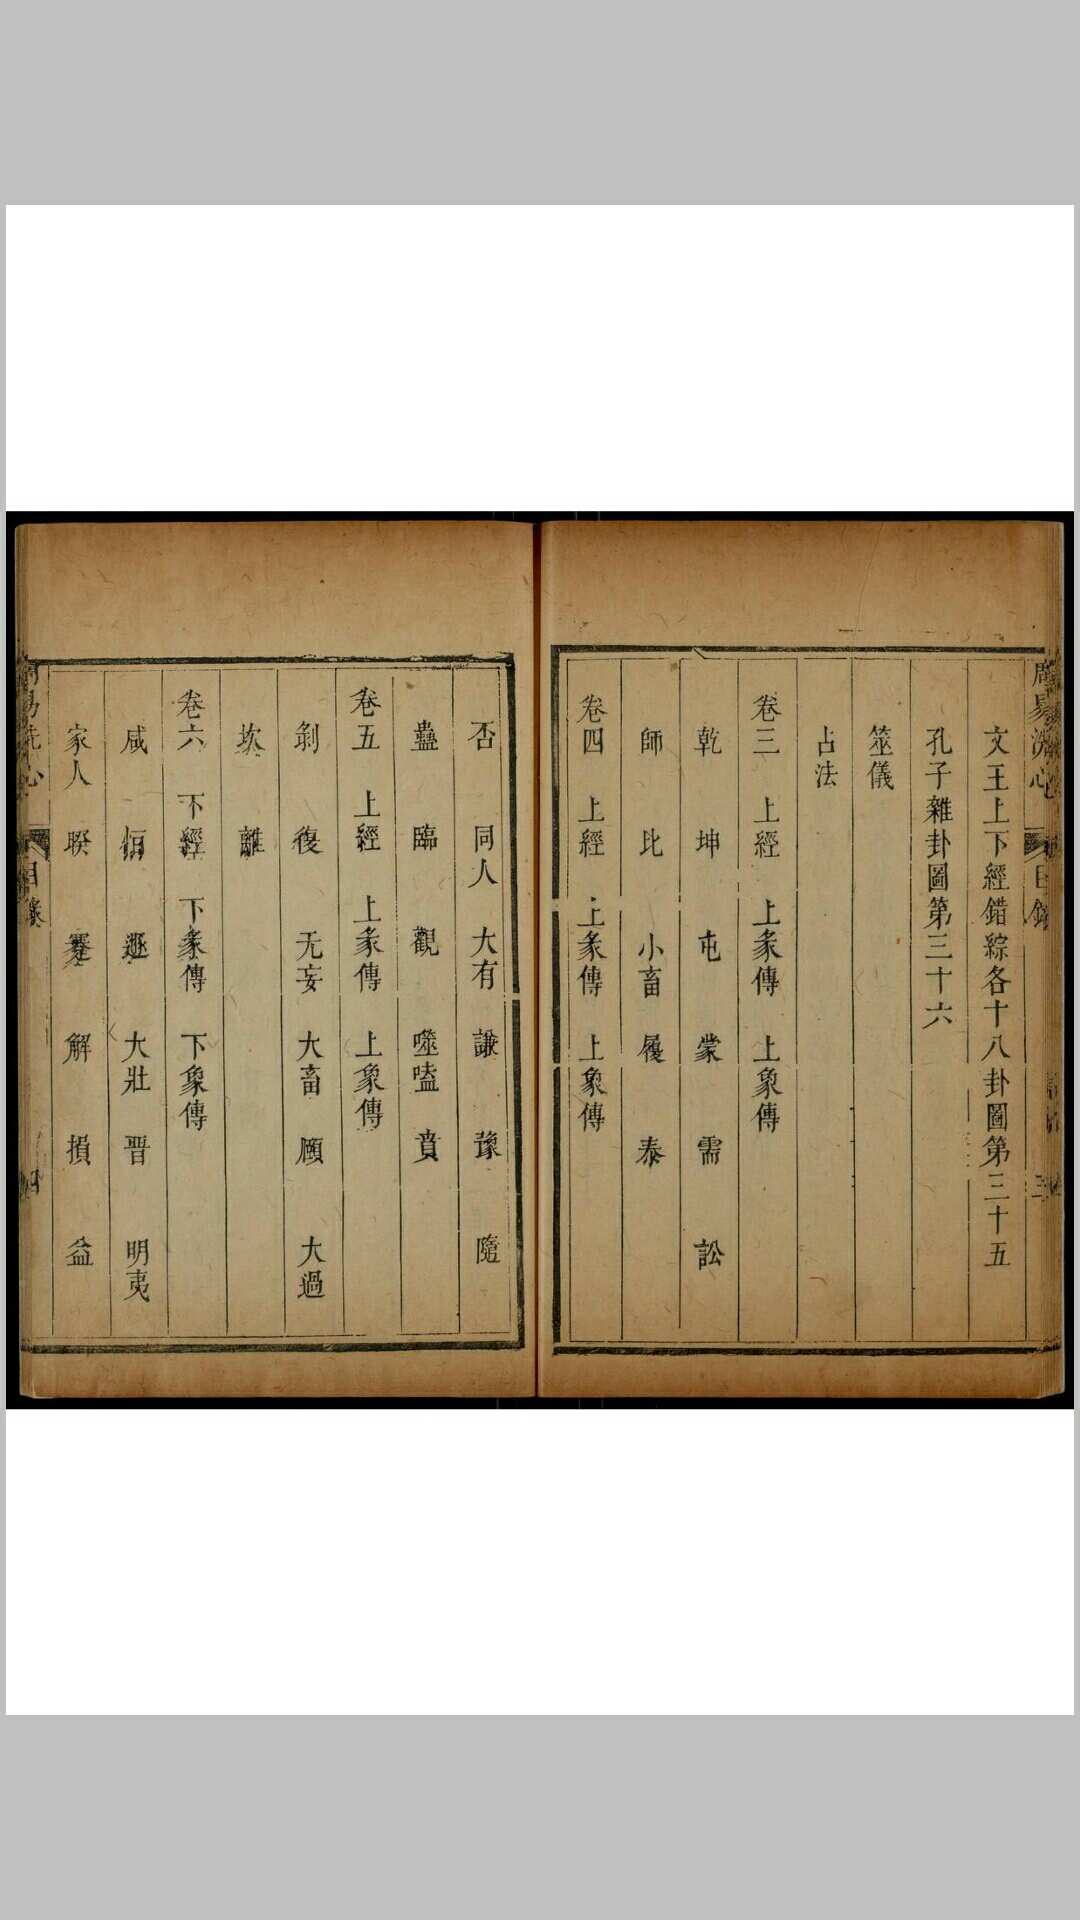 周易洗心
目錄
三
文王上下經錯綜各十八卦圖第三十五
孔子雜卦圖第三十六
筮儀
占法
卷三 上經 上彖傳 上象傳
乾 坤 屯 蒙 需 訟
師 比 小畜 履 泰
卷四 上經 上彖傳 上象傳
否 同人 大有 謙 豫 隨
蠱 臨 觀 噬嗑 賁
卷五 上經 上彖傳 上象傳
剝 復 无妄 大畜 頤 大過
坎 離
卷六 下經 下彖傳 下象傳
咸 恒 遯 大壯 晋 明夷
家人 睽 蹇 解 損 益
周易洗心
目錄